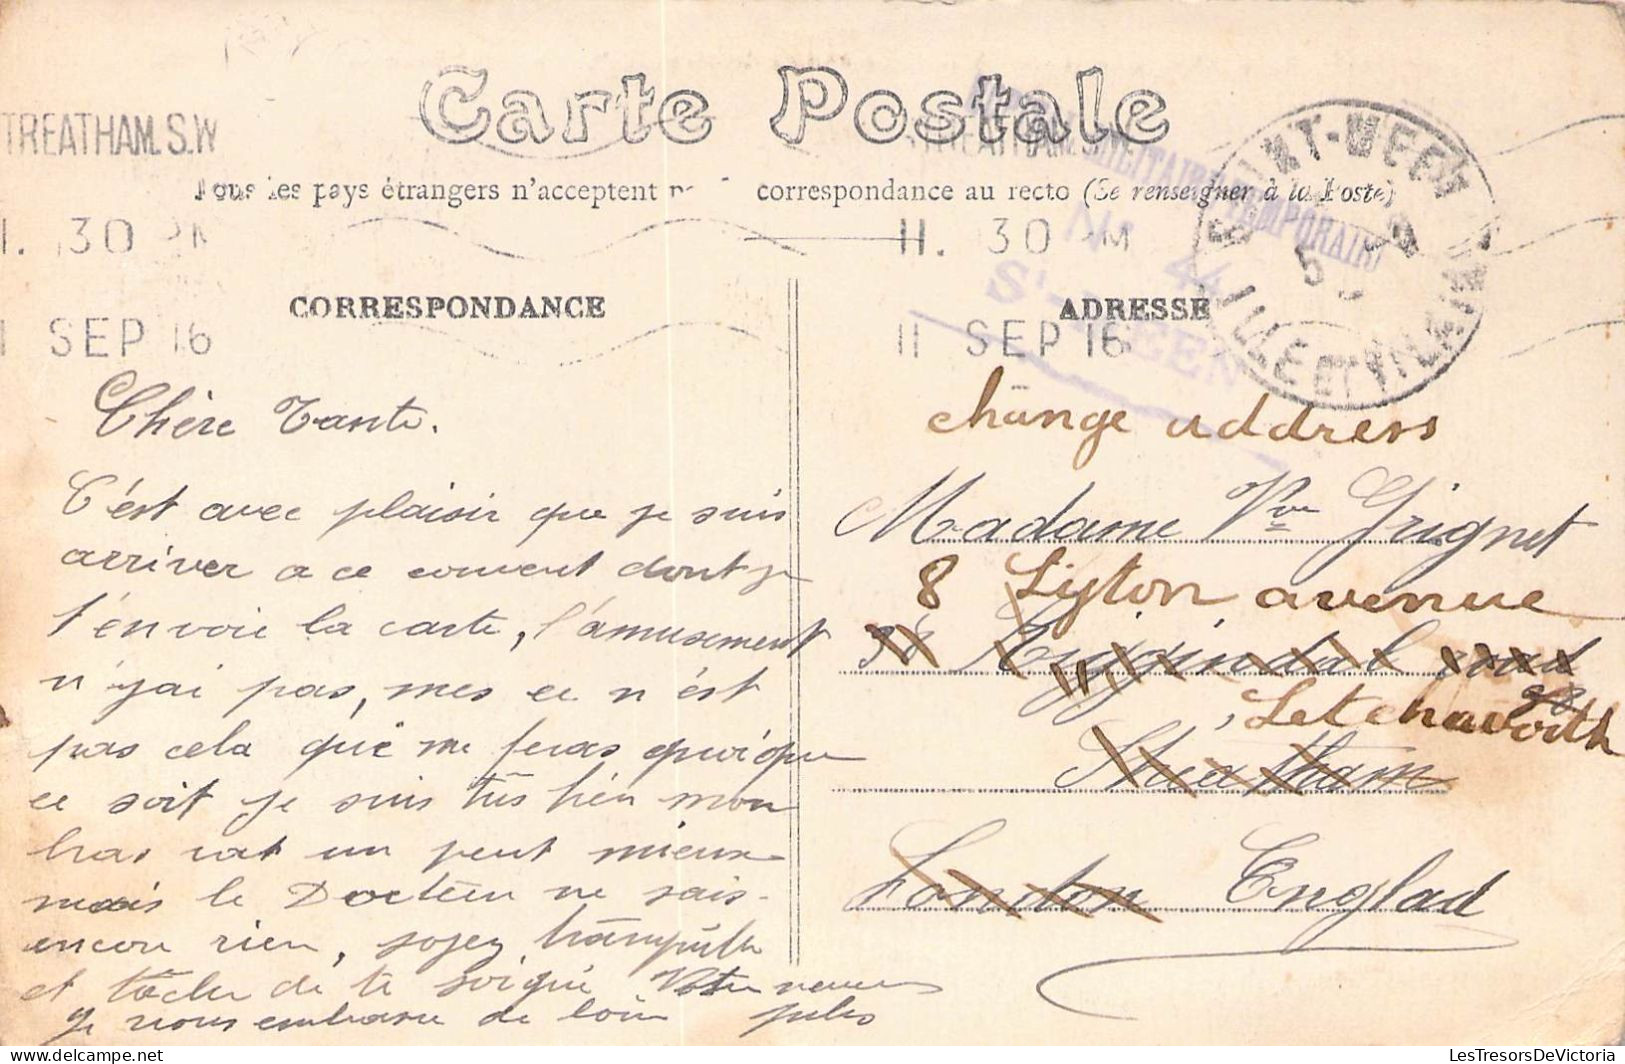 Carte Postale
TREATHAM. S.W
Tous les pays étrangers n'acceptent correspondance au recto (Se renseigner à la Poste)
11. 30 PM
11. 30 PM
CORRESPONDANCE
ADRESSE
SEP 16
11 SEP 16
SAINT-MEEN
ILLE ET VILAINE
TEMPORAIRE
No 44
St-MEEN
Chère Tante.
C'est avec plaisir que je suis
arriver a ce couvent dont je
t'envoie la carte, l'amusement
n'jai pas, mes ce n'est
pas cela que me feras quoique
ce soit je suis très bien mon
bras vat un peut mieux
mais le Docteur ne sais
encore rien, soyez tranquille
et tacher de te soigné Votre neveu
Je vous embrasse de loin Jules
change address
Madame Vve Grignet
8 Lyton avenue
38 Riggindal road
, Letchavorth
Streatham
London Englad
LesTresorsDeVictoria